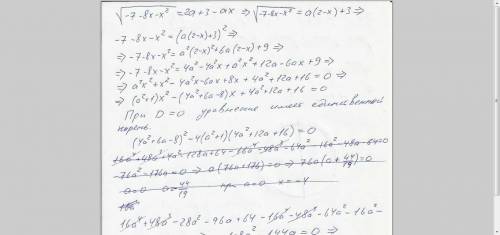 √(-7-8x-x²) = 2a+3-ax ⇒ √(-7-8x-x²) = a(2-x)+3 ⇒
-7-8x-x² = (a(2-x)+3)² ⇒
⇒ -7-8x-x² = a²(2-x)²+6a(2-x)+9 ⇒
⇒ -7-8x-x² = 4a²-4a²x+a²x²+12a-6ax+9 ⇒
⇒ a²x²+x²-4a²x-6ax+8x+4a²+12a+16=0 ⇒
⇒ (a²+1)x²-(4a²+6a-8)x+4a²+12a+16=0
При D=0 уравнение имеет единственный
корень.
(4a²+6a-8)²-4(a²+1)(4a²+12a+16)=0
-76a²-176a=0 ⇒ a(76a+176)=0 ⇒ 76a(a+44/19)=0
a=0 a=44/19 при a=0 x=-4
16a⁴+48a³-28a²-96a+64-16a⁴-48a³-64a²-16a²-